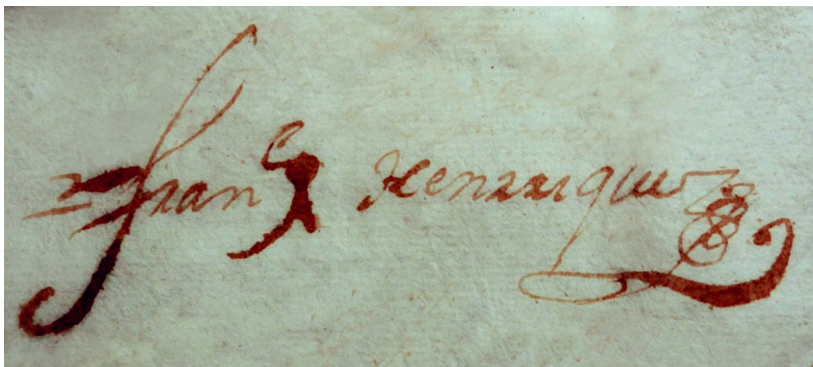 Fran^co Henrriquez